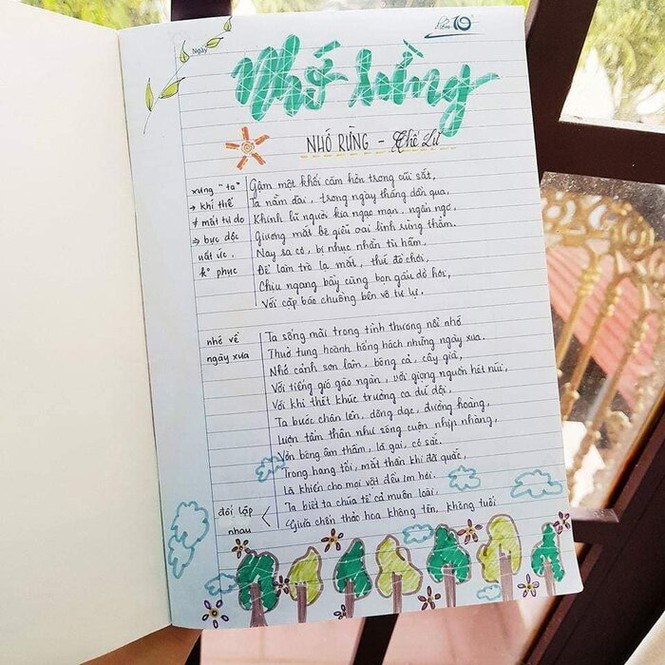 Ngày
Điểm 10
Nhớ rừng
NHỚ RỪNG - Thế Lữ
xưng "ta"
→ khí thế
≠ mất tự do
⇒ bực dọc
uất ức,
k° phục
Gậm một khối căm hờn trong cũi sắt,
Ta nằm dài, trong ngày tháng dần qua,
Khinh lũ người kia ngạo mạn, ngẩn ngơ,
Giương mắt bé giễu oai linh rừng thẳm.
Nay sa cơ, bị nhục nhằn tù hãm.
Để làm trò lạ mắt, thứ đồ chơi,
Chịu ngang bầy cùng bọn gấu dở hơi,
Với cặp báo chuồng bên vô tư lự.
nhớ về
ngày xưa
Ta sống mãi trong tình thương nỗi nhớ
Thuở tung hoành hống hách những ngày xưa.
Nhớ cảnh sơn lâm, bóng cả, cây già,
Với tiếng gió gào ngàn, với giọng nguồn hét núi,
Với khi thét khúc trường ca dữ dội,
Ta bước chân lên, dõng dạc, đường hoàng,
Lượn tấm thân như sóng cuộn nhịp nhàng,
Vờn bóng âm thầm, lá gai, cỏ sắc.
Trong hang tối, mắt thần khi đã quắc,
Là khiến cho mọi vật đều im hơi.
đối lập
nhau
Ta biết ta chúa tể cả muôn loài,
Giữa chốn thảo hoa không tên, không tuổi